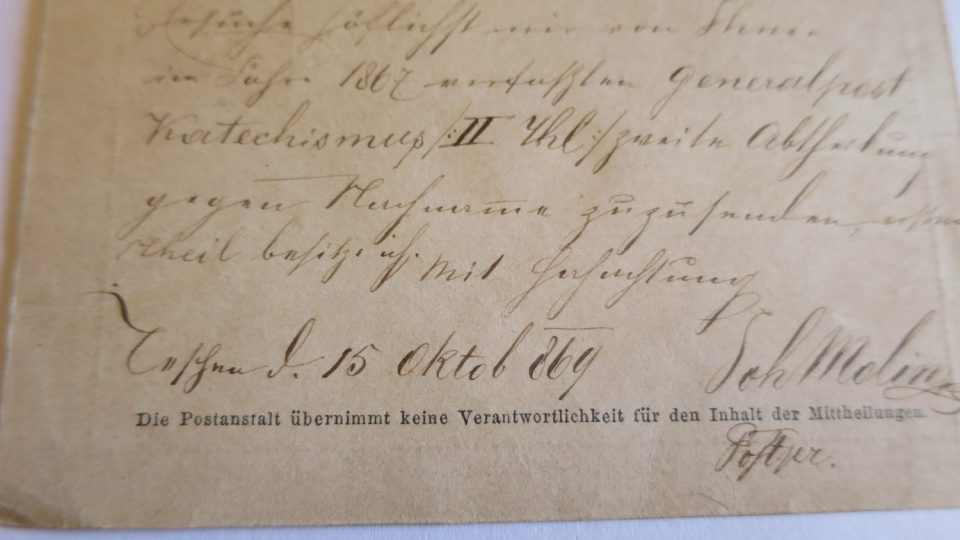 Ersuche höflichst mir von Ihnen
im Jahre 1867 verfaßten Generalpost
Katechismus /:II Thl:/ zweite Abtheilung
gegen Nachname zuzusenden, ersten
Theil besitze ich. Mit Hochachtung
Teschen d. 15 Oktob 869 Joh Molin
Die Postanstalt übernimmt keine Verantwortlichkeit für den Inhalt der Mittheilungen.